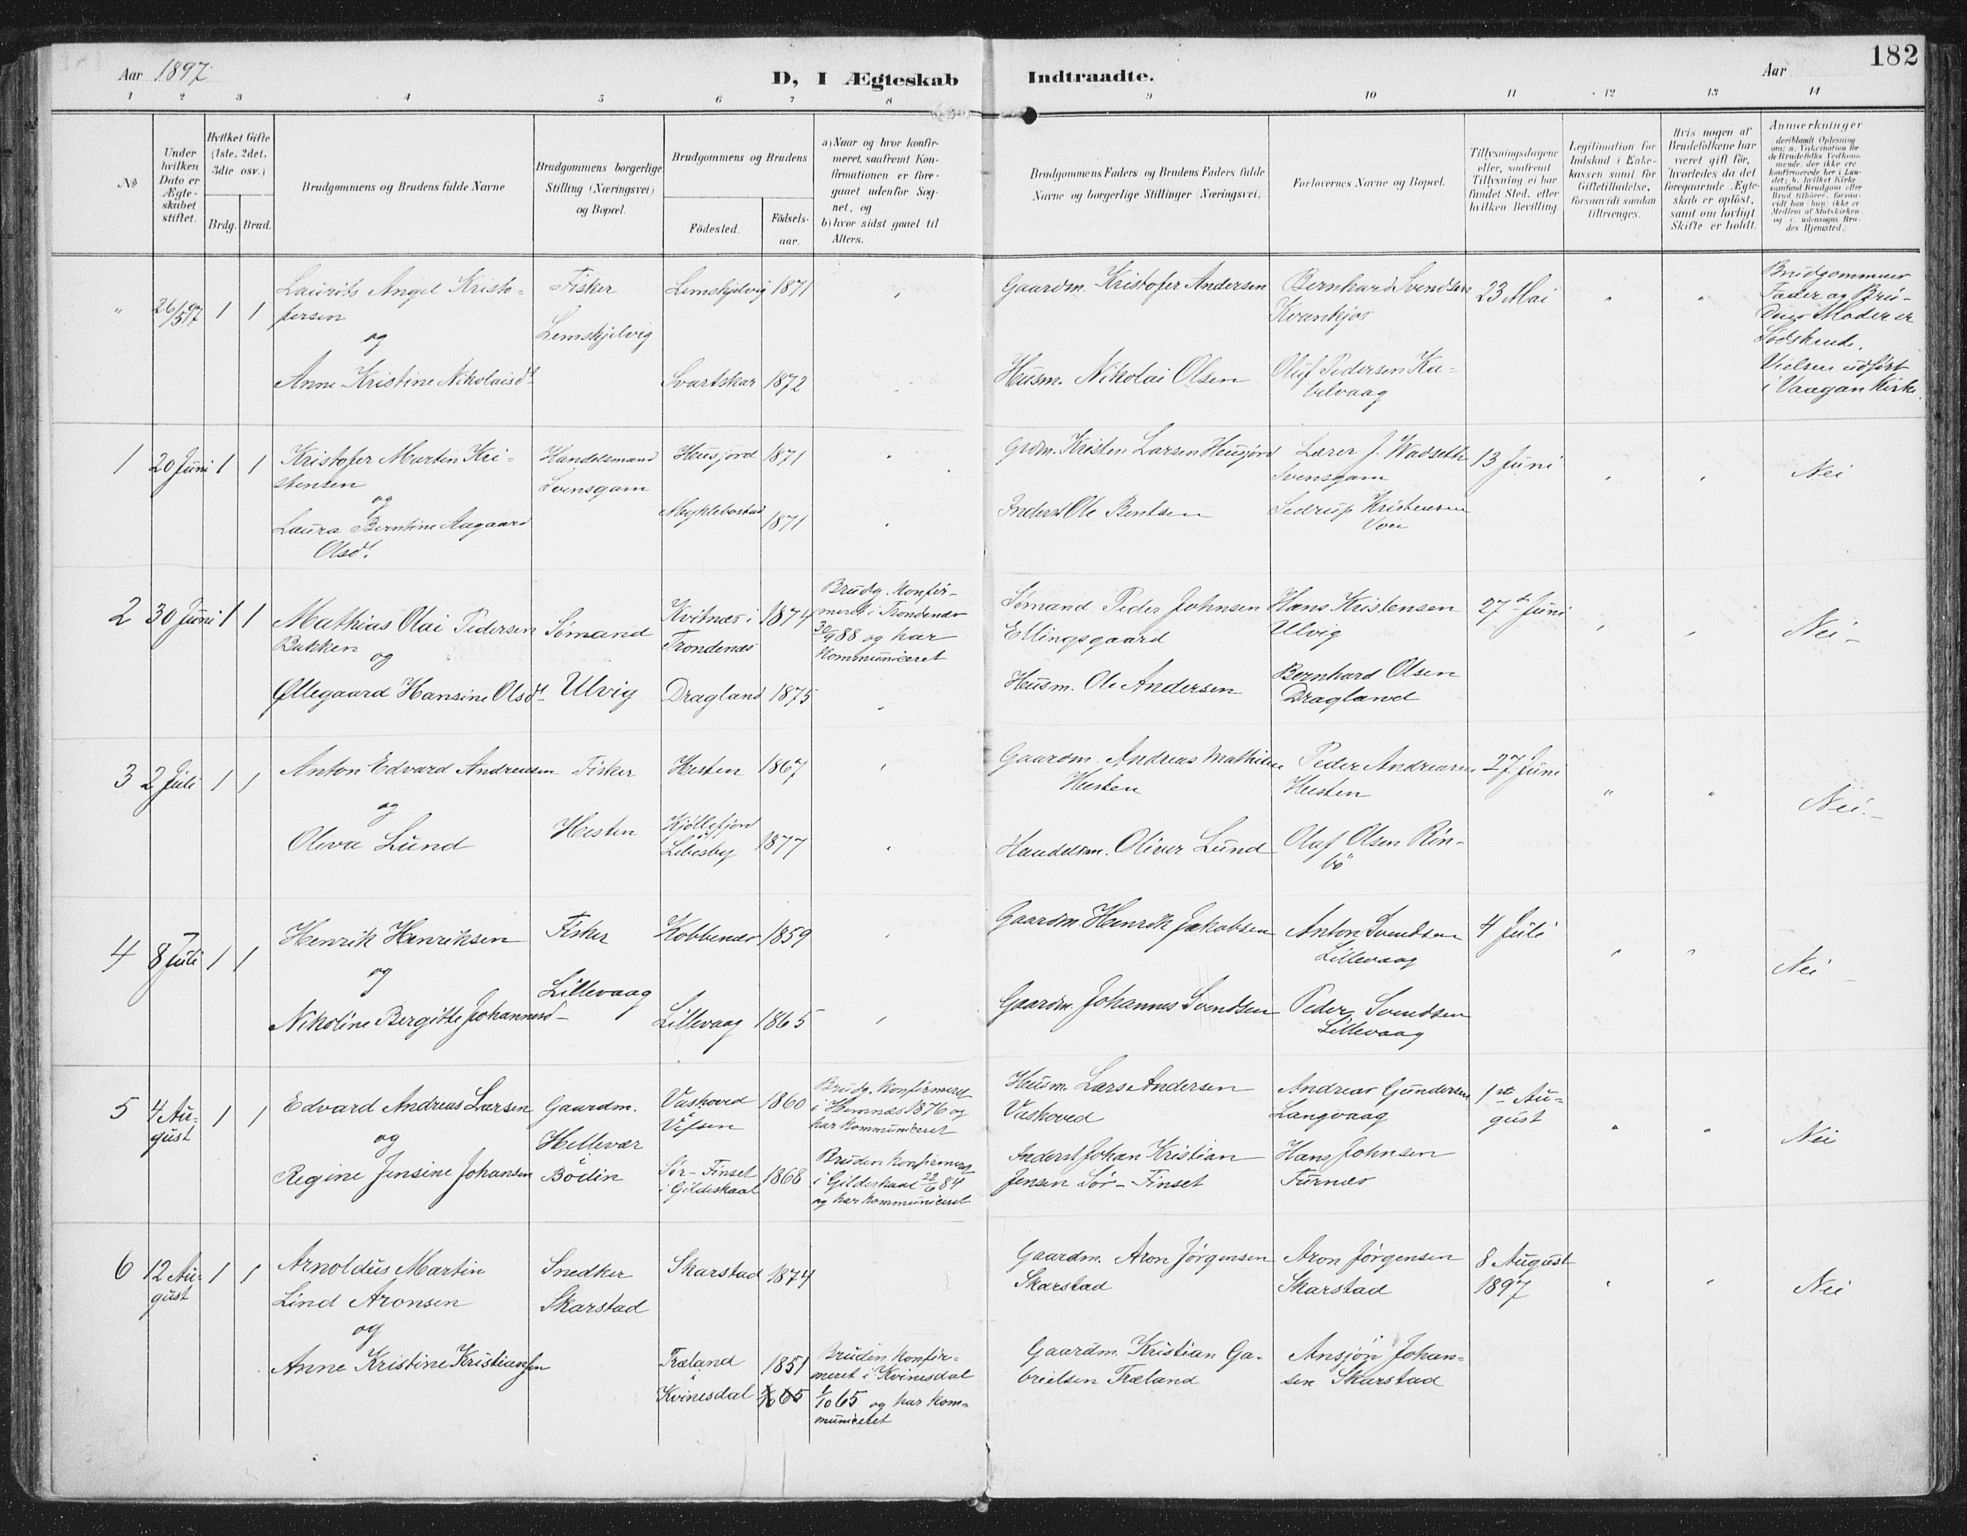 182
Aar 1897
D, I Ægteskab
Indtraadte.
Aar
1 2 3 4 5 6 7 8 9 10 11 12 13 14
No
Under
hvilken
Dato er
Ægte-
skabet
stiftet.
Hvilket Gifte
(1ste, 2det,
3die osv.)
Brdg. Brud.
Brudgommens og Brudens fulde Navne
Brudgommens borgerlige
Stilling (Næringsvei)
og Bopæl.
Brudgommens og Brudens
Födested.
Födsels-
aar.
a) Naar og hvor konfir-
meret, saafremt Kon-
firmationen er fore-
gaaet udenfor Sog-
net, og
b) hvor sidst gaaet til
Alters.
Brudgommens Faders og Brudens Faders fulde
Navne og borgerlige Stillinger (Næringsvei).
Forlovernes Navne og Bopæl.
Tillysningsdagene
eller, saafremt
Tillysning ei har
fundet Sted, efter
hvilken Bevilling
Legitimation for
Indskud i Enke-
kassen samt for
Giftetilladelse,
forsaavidt saadan
tiltrænges.
Hvis nogen af
Brudefolkene har
været gift før,
hvorledes da det
foregaaende Ægte-
skab er oplöst,
samt om lovligt
Skifte er holdt.
Anmærkninger
" 26/5 97 1 1
Laurits Angel Kristo-
fersen
og
Anne Kristine Nikolaisdt
Fisker
Lemskjelvig
Lemskjelvig 1871 "
Svartskar 1872 "
Gaardm. Kristofer Andersen
Husm. Nikolai Olsen
Bernhard Svendsen
Kvankjos
Oluf Pedersen Ka-
belvaag
23 Mai " "
Brudgommens
Fader og Bru-
dens Moder er
Södskende.
Vielsen udført
i Vaagan Kirke.
1 20 Juni 1 1
Kristofer Martin Kri-
stensen
og
Laura Berntine Aagaard
Olsdt.
Handelsmand
Svensgam
Husjord 1871 "
Myklebostad 1871 "
Grdm. Kristen Larsen Husjord
Inderst Ole Bentsen
Lærer J. Wadseth
Svensgam
Sedrup Kristensen
13 Juni " " Nei
2 30 Juni 1 1
Mathias Olai Pedersen
Bakken
og
Øllegaard Hansine Olsdt
Sømand
Ulvig
Kvitnæs i
Trondenæs
1874
Dragland 1875
Brudg. konfir-
meret i Trondenæs
30/9 88 og har
kommuniceret
"
Sømand Peder Johnsen
Ellingsgaard
Husm. Ole Andersen
Hans Kristensen
Ulvig
Bernhard Olsen
Dragland
27de Juni " " Nei -
3 2 Juli 1 1
Anton Edvard Andreasen
og
Oliva Lund
Fisker
Hesten
Hesten 1867 "
Kjöllefjord
Lebesby 1877 "
Gaardm. Andreas Mathisen
Hesten
Handelsm. Oliver Lund
Peder Andreasen
Hesten
Olaf Olsen Rin-
bö
27 Juni " " Nei. -
4 8 Juli 1 1
Henrik Henriksen
og
Nikoline Bergitte Johannesd-
Fisker
Lillevaag
Kobbenæs 1859 "
Lillevaag 1865 "
Gaardm. Henrik Jakobsen
Gaardm. Johannes Svendsen
Anton Svendsen
Lillevaag
Peder Svendsen
Lillevaag
4 Juli " " Nei -
5 4 Au-
gust 1 1
Edvard Andreas Larsen
og
Regine Jensine Johansen
Gaardm.
Hellevær
Bödin
Vashoved
Vefsen 1860
Sør-Finset
i Gildeskaal 1868
Brudg. konfirmeret
i Hemnæs 1876 og
har kommuniceret
Bruden konfirmeret
i Gildeskaal 22/6 84
og har kommuniceret
Husm. Lars Andersen
Vashoved
Inderst Johan Kristian
Jensen Sør-Finset
Andreas Gundersen
Langvaag
Hans Johnsen
Furnæs
1ste Au-
gust " " Nei
6 12 Au-
gust 1 1
Arnoldus Martin
Lind Aronsen
og
Anne Kristine Kristiansen
Snedker
Skarstad
Skarstad 1874
Træland
i
Kvinesdal 1851
Bruden konfir-
meret i Kvinesdal
1/10 65 og har kom-
municeret
Gaardm. Aron Jørgensen
Skarstad
Gaardm. Kristian Ga-
brielsen Træland
Aron Jørgensen
Skarstad
Ansjøn Johan-
sen Skarstad
8 August
1897 " " Nei